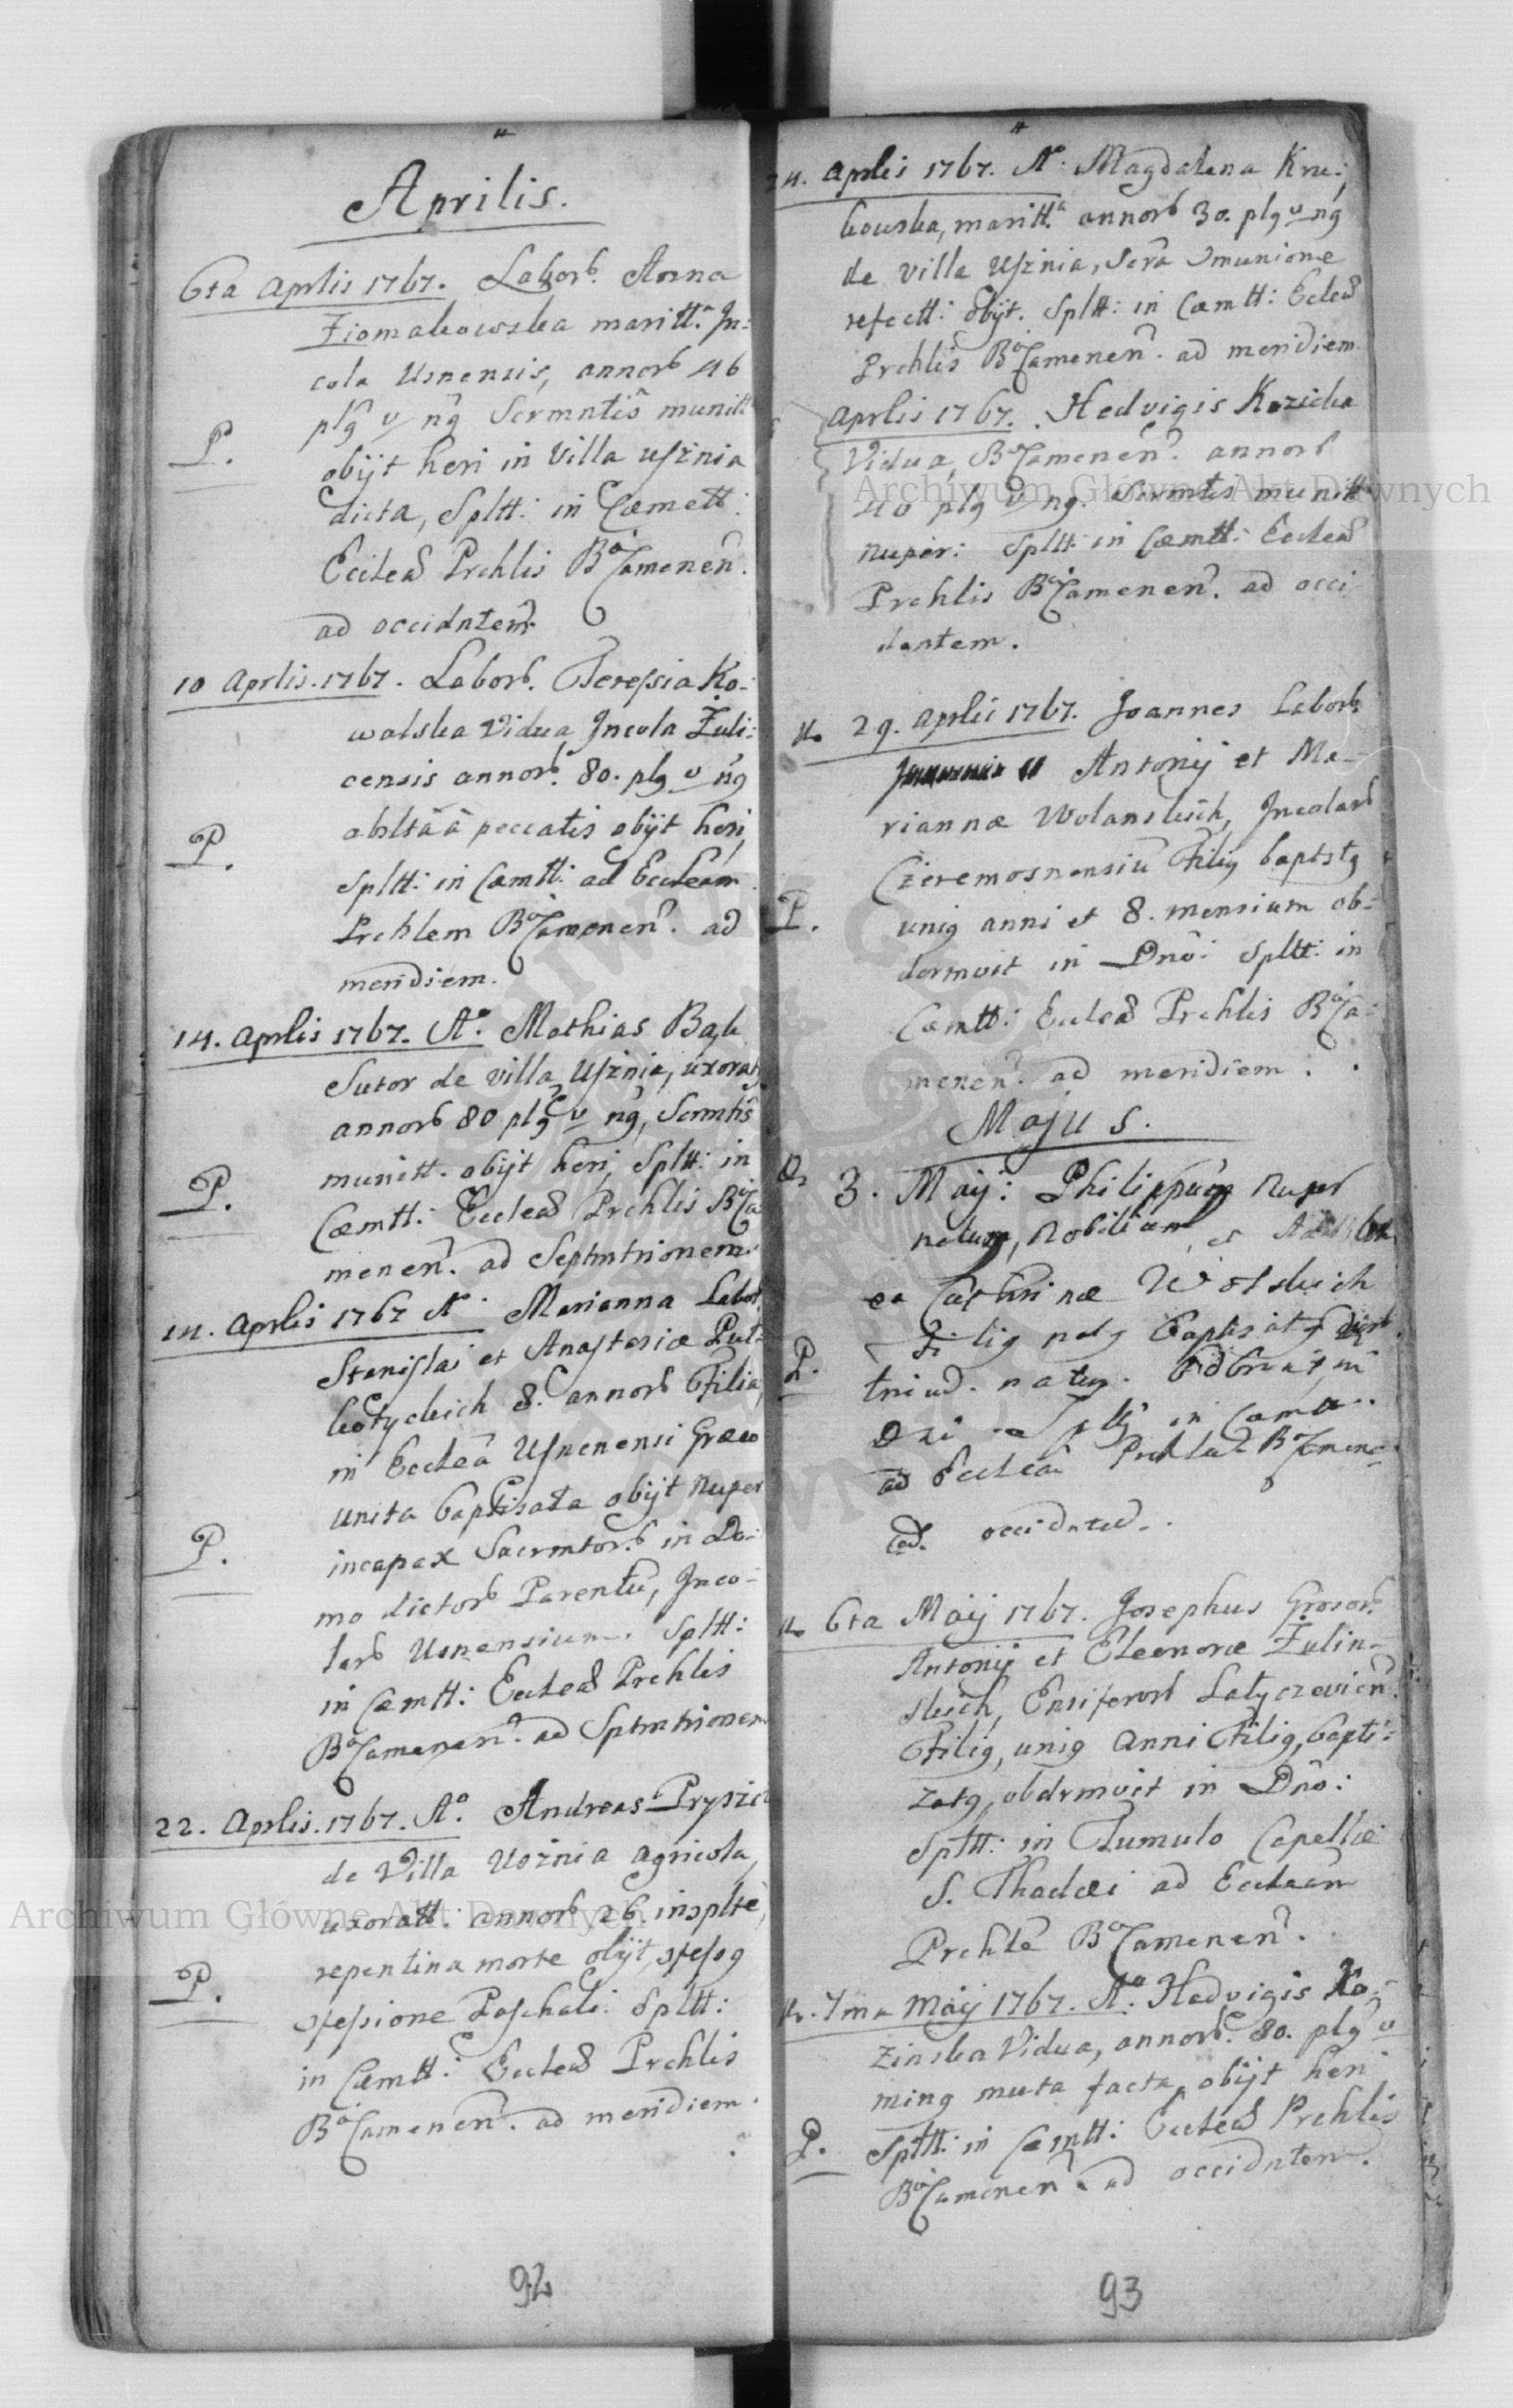 Aprilis.
6ta Aprlis 1767. Laborb. Anna
Ziomakowska maritt.a In:
cola Usnensis, annorb 46
plg v ng Sacrmntis munitt
P.
obijt heri in Villa Usznia
dicta, Spltt: in Cœmett:
Eccleæ Prchlis Bo Camenen.
ad occidntem.
10 Aprlis. 1767. Laborb. Teressia Ko-
walska Vidua Incola Żuli:
censis annorb. 80. plg v ng
absltââ peccatis obijt heri,
P.
Spltt: in Cœmtt: ad Eccleam
Prchlem Bo Camenen. ad
meridiem.
14. Aprlis 1767. Ao. Mathias Bąk
Sutor de villa Uśznia, uxorat
annorb 80 plg v ng, Scrmtis
munitt. obijt heri, Spltt: in
P.
Cœmtt: Eccleæ Prchlis Bo Ca
menen. ad Septmtrionem.
14. Aprlis 1767 Ao Marianna Labor
Stanislai et Anastasiæ Put-
kotyckich 8. annorb Filia,
in Ecclea Usnenensi Græco
unita baptisata obijt nuper
P.
incapax Sacrmtorb. in Do-
mo dictorb Parentu, Inco-
larb Usnensium. Spltt:
in Cœmtt: Eccleæ Prchlis
Bo Camenen. ad Sptmtrionem
22. Aprlis. 1767. Ao. Andreas Prysz
de Villa Usznia agricola,
uxoratt: annorb 26. insplte,
repentina morte obijt,
P.
Paschali. Spltt:
in Cœmtt: Eccleæ Prchlis
Bo Camenen. ad meridiem.
92
24. Aprlis 1767. Ao. Magdalena Kru-
kowska, maritt.a annorb 30. plg v ng
de villa Usznia, Sacra Cmunione
refectt: obijt. Spltt: in Cœmtt: Eccleæ
Prchlis Bo Camenen. ad meridiem.
Aprlis 1767. Hedvigis Kozicka
Vidua, Bo Camenen. annorb
40 plg v ng. Sacrmtis munitt
nuper: Spltt: in Cœmtt: Eccleæ
Prchlis Bo Camenen. ad occi
dentem.
29. Aprlis 1767. Joannes Laborb.
Antonij et Ma-
riannæ Wolanskich, Incolarb
Czeremosnensiu Filig baptstg
P.
unig anni et 8. mensium ob-
dormvit in Dno: Spltt: in
Cœmtt: Eccleæ Prchlis Bo Ca-
menen. ad meridiem.
Majus.
3. Maij: Philippum nuper
natum, Nobilium et
Cathrinæ Wolskich
Filig natg Baptisatg
P.
triud. natum.
in Cœmtt.
ad Eccleam Prchlem Bo Camene
ad. occidntem.
6ta Maij 1767. Josephus Grosorb.
Antonij et Eleonoræ Żulin-
skich, Ensiferorb Latyczovien.
Filig, unig Anni Filig, bapti-
zatg, obdrmvit in Dno:
Spltt: in Tumulo Capellæ
S. Thadæi ad Eccleam
Prchle Bo Camenen.
7ma Maij 1767. Ao. Hedvigis Ko-
zinska Vidua, annorb. 80. plg v
ming muta facta, obijt heri
P.
Spltt: in Cœmtt: Eccleæ Prchlis
Bo Camenen. ad occidntem.
93
Archiwum Główne Akt Dawnych
Archiwum Główne Akt Dawnych